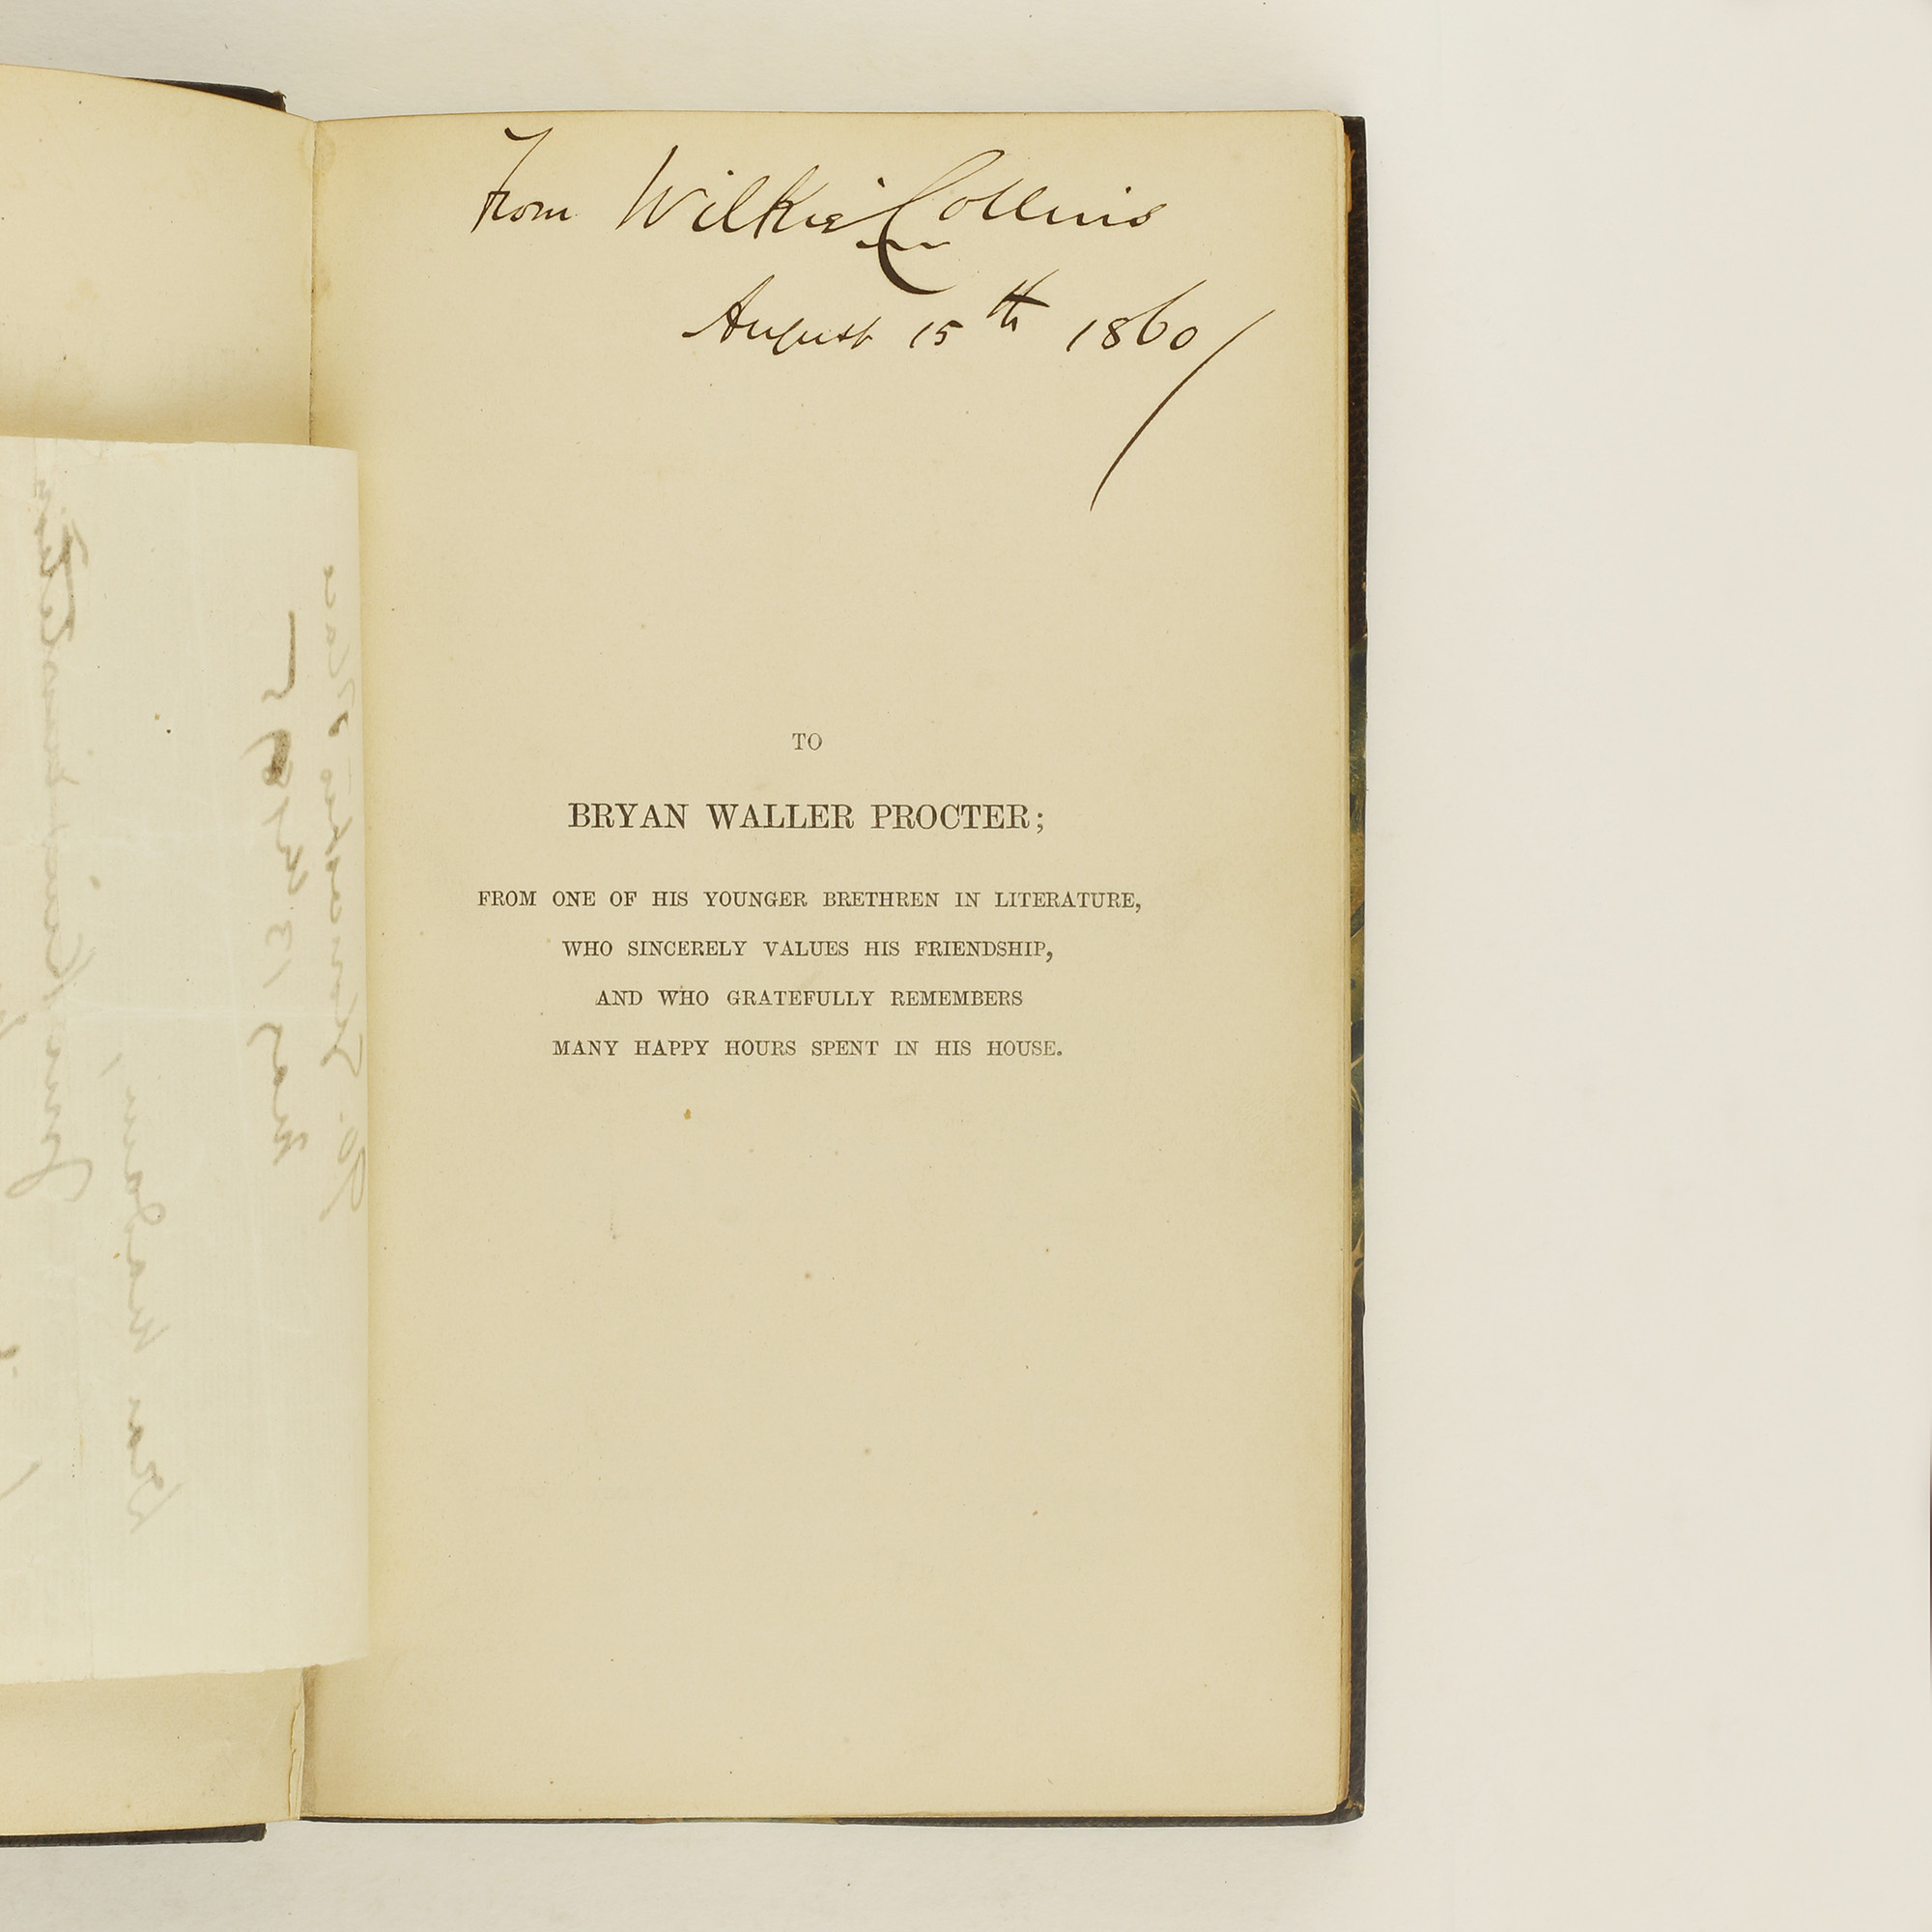 From Wilkie Collins
August 15th 1860
TO
BRYAN WALLER PROCTER;
FROM ONE OF HIS YOUNGER BRETHREN IN LITERATURE,
WHO SINCERELY VALUES HIS FRIENDSHIP,
AND WHO GRATEFULLY REMEMBERS
MANY HAPPY HOURS SPENT IN HIS HOUSE.